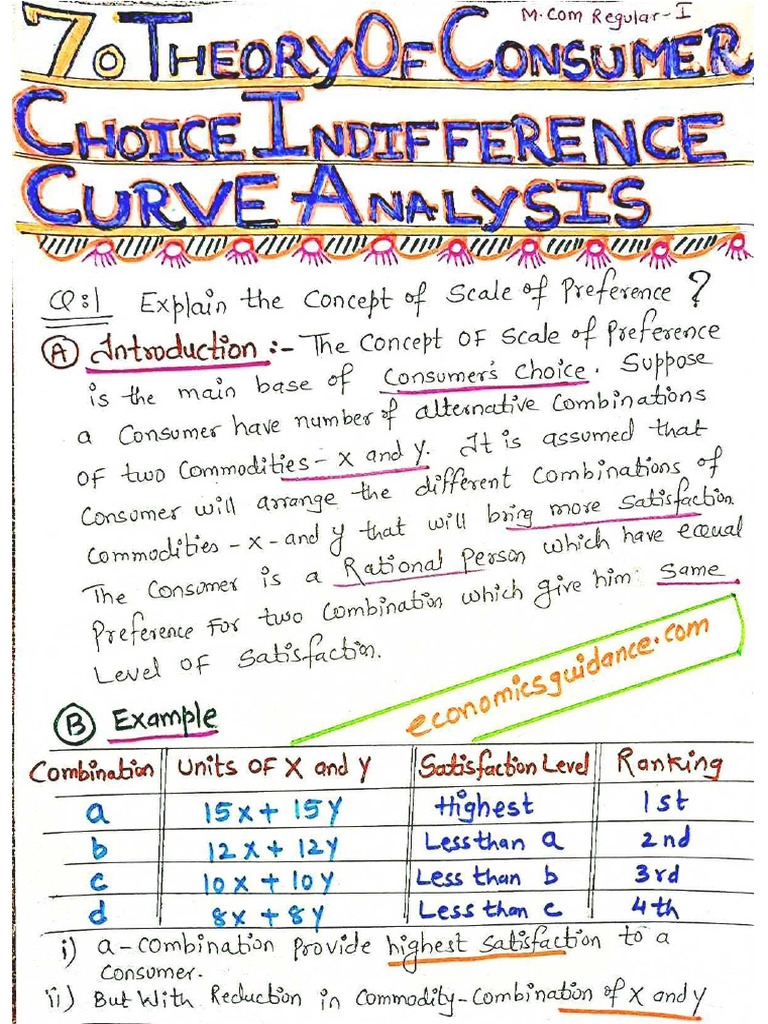 M.Com Regular-I
7. THEORY OF CONSUMER
CHOICE INDIFFERENCE
CURVE ANALYSIS
Q:1 Explain the Concept of Scale of Preference ?
(A) Introduction :- The Concept OF Scale of Preference
is the main base of Consumer's Choice. Suppose
a Consumer have number of alternative Combinations
OF two Commodities - X and Y. It is assumed that
Consumer will arrange the different Combinations of
Commodities - X - and Y that will bring more Satisfaction
The Consumer is a Rational Person which have equal
Preference For two Combination which give him Same
Level OF Satisfaction.
economicsguidance.com
(B) Example
Combination Units OF X and Y Satisfaction Level Ranking
a 15X + 15Y Highest 1st
b 12X + 12Y Less than a 2nd
c 10X + 10Y Less than b 3rd
d 8X + 8Y Less than c 4th
i) a-Combination Provide highest Satisfaction to a
Consumer.
ii) But With Reduction in Commodity-Combination of X and Y